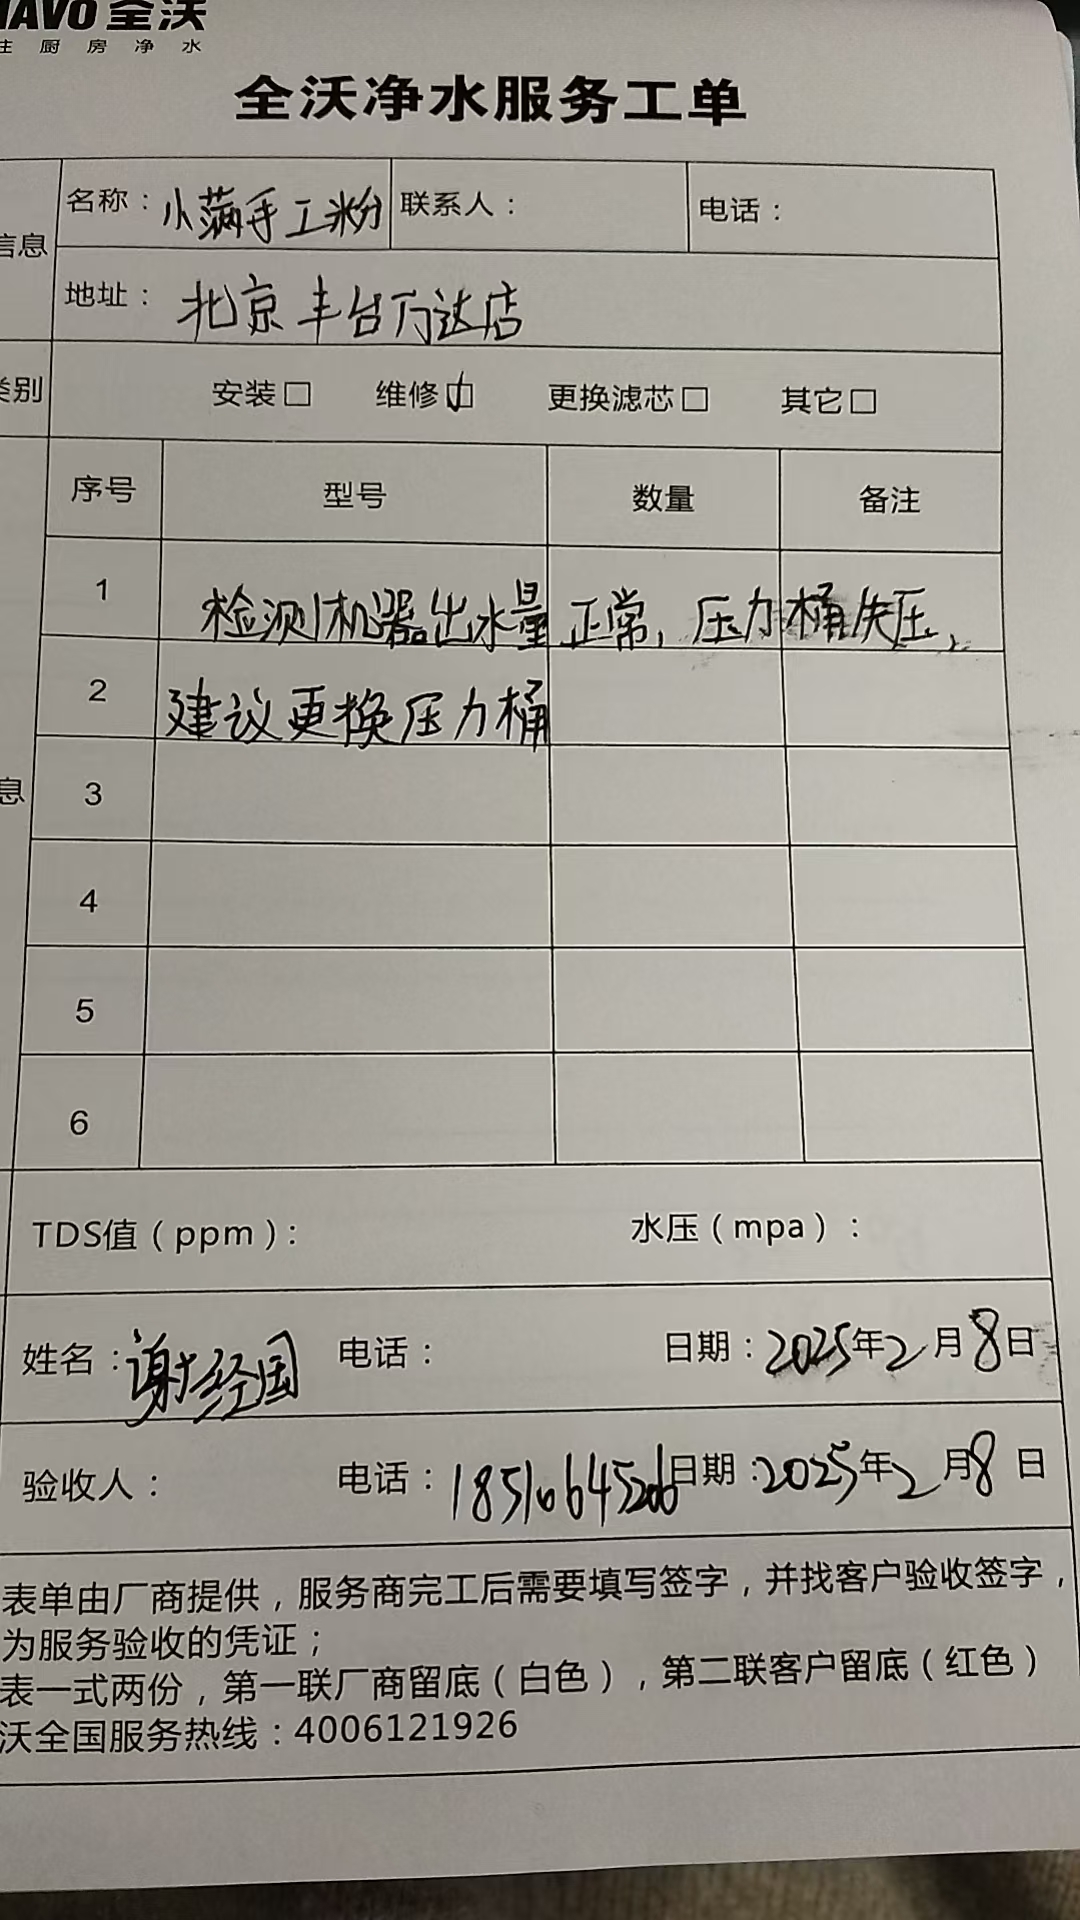 全沃
住厨房净水
全沃净水服务工单
信息
名称：小满手工粉 联系人： 电话：
地址：北京丰台万达店
类别 安装□ 维修☑ 更换滤芯□ 其它□
序号 型号 数量 备注
1 检测机器出水量正常，压力桶失压，
2 建议更换压力桶
息 3
4
5
6
TDS值（ppm）： 水压（mpa）：
姓名：谢经国 电话： 日期：2025年2月8日
验收人： 电话：18516645206 日期：2025年2月8日
表单由厂商提供，服务商完工后需要填写签字，并找客户验收签字，
为服务验收的凭证；
表一式两份，第一联厂商留底（白色），第二联客户留底（红色）
沃全国服务热线：4006121926